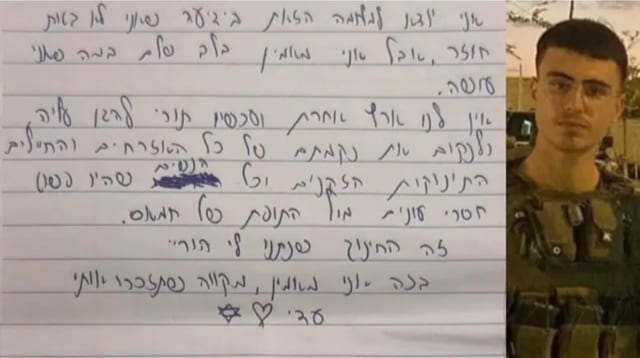 אני יוצא למלחמה הזאת בידיעה שאני לא בטוח
חוזר, אבל אני מאמין בלב שלם במה שאני
עושה.
אין לנו ארץ אחרת ועכשיו תורי להגן עליה
ולנקום את נקמתם של כל האזרחים והחיילים
התינוקות הזקנים וכל הנשים שהיו פשוט
חסרי עונים מול התופת של חמאס.
זה החינוך שנתנו לי הוריי
בזה אני מאמין, מקווה שתזכרו אותי
עדי ♡ ✡